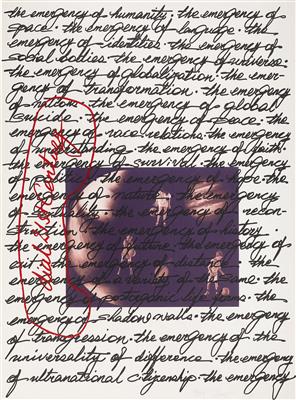 the emergency of humanity · the emergency of
space · the emergency of language · the
emergency of identities · the emergency of
social bodies · the emergency of universe ·
the emergency of globalization · the emer-
gency of transformation · the emergency
of nations · the emergency of global
suicide · the emergency of peace · the
emergency of race relations · the emergency
of understanding · the emergency of faith ·
the emergency of survival · the emergency
of politics · the emergency of hope · the
emergency of nature · the emergency
of · the emergency of recon-
struction · the emergency of history ·
the emergency of future · the emergency of
exit · the emergency of distance · the
emergency of a variety of the same · the
emergency of postorganic life forms · the
emergency of shadow walls · the emergency
of transgression · the emergency of the
universality of difference · the emergency
of ultranational citizenship · the emergency